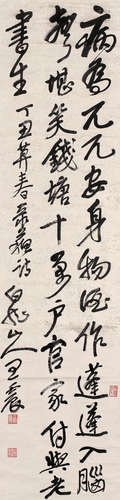 病為兀兀安身物酒作蓬蓬入腦
聲堪笑錢塘十萬戶官家付與老
書生 丁丑莫春錄蘇詩 白龍山人王震